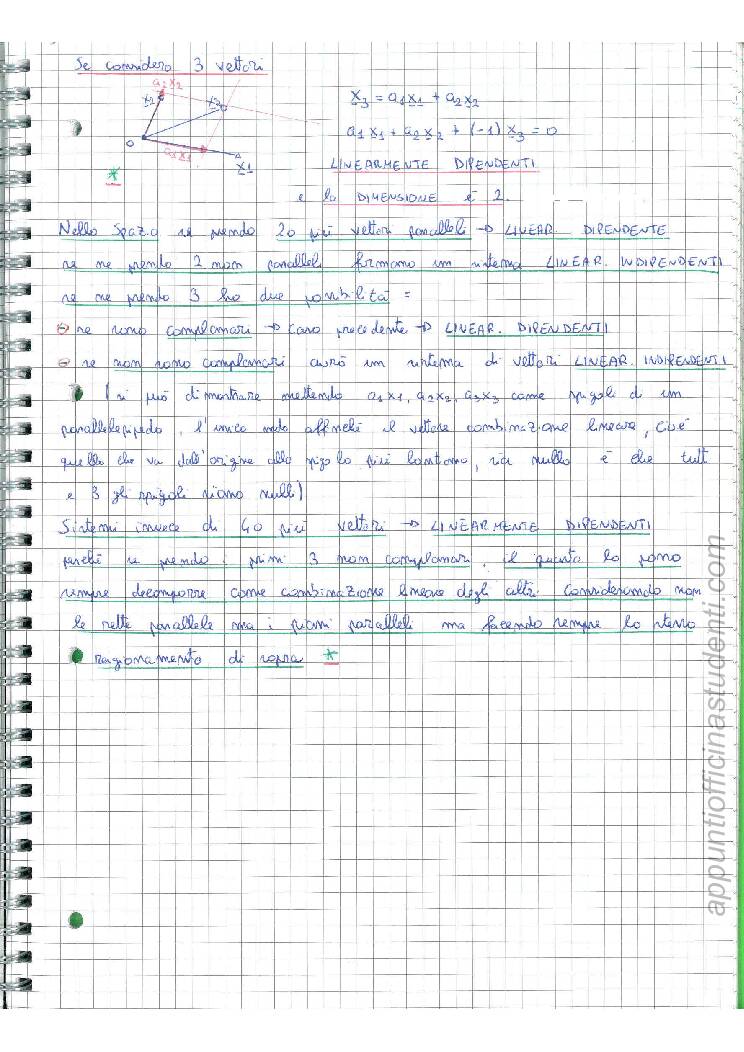 Se considero 3 vettori
a2x2
x2
x3
O
a1x1
x1
*
x3 = a1x1 + a2x2
a1x1 + a2x2 + (-1) x3 = 0
LINEARMENTE DIPENDENTI
e la DIMENSIONE è 2.
Nello Spazio se prendo 2 o più vettori paralleli → LINEAR. DIPENDENTE
se ne prendo 2 non paralleli formano un sistema LINEAR. INDIPENDENTI
se ne prendo 3 ho due possibilità =
- se sono complanari → caso precedente → LINEAR. DIPENDENTI
- se non sono complanari avrò un sistema di vettori LINEAR. INDIPENDENTI
(si può dimostrare mettendo a1x1, a2x2, a3x3 come spigoli di un
parallelepipedo, l'unico modo affinché il vettore combinazione lineare, cioè
quello che va dall'origine allo spigolo più lontano, sia nullo è che tutt
e 3 gli spigoli siano nulli)
Sistemi invece di 4 o più vettori → LINEARMENTE DIPENDENTI
perché se prendo i primi 3 non complanari, il quarto lo posso
sempre decomporre come combinazione lineare degli altri considerando non
le rette parallele ma i piani paralleli ma facendo sempre lo stesso
ragionamento di sopra *
appuntiofficinastudenti.com